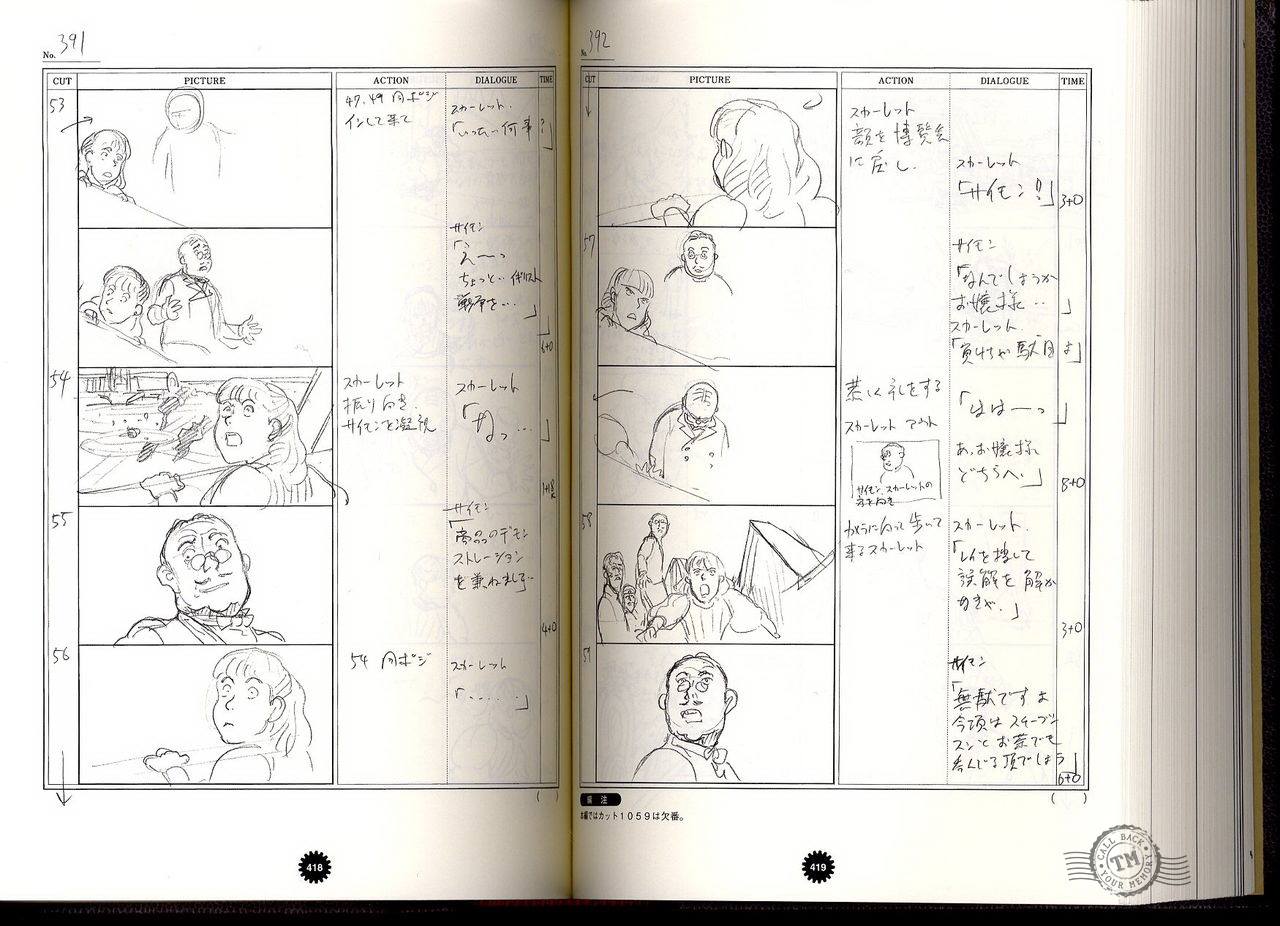 No. 391
CUT PICTURE ACTION DIALOGUE TIME
53
47, 49 同ポジ
インして来て
スカーレット
「いったい何事?」
サイモン
「えーっ
ちょっと… イギリスと
戦争を…」
6+0
54
スカーレット
振り向き
サイモンを凝視
スカーレット
「なっ…」
55
サイモン
「商品のデモン
ストレーション
を兼ねまして…
4+0
56
54 同ポジ
スカーレット
「……」
418
No. 392
CUT PICTURE ACTION DIALOGUE TIME
スカーレット
顔を博覧会
に戻し
スカーレット
「サイモン!」
3+0
57
サイモン
「なんでしょうか
お嬢様…」
スカーレット
「負けちゃ駄目よ」
スカーレット アウト
「ははーっ」
あ、お嬢様
どちらへ」
サイモン スカーレットの
8+0
58
歩いて
来るスカーレット
スカーレット
「レイを捜して
誤解を解か
なきゃ」
3+0
59
サイモン
「無駄ですよ
今頃はスチーブン
スンとお茶でも
呑んでる頃でしょう」
6+0
備 注
本編ではカット1059は欠番。
419
CALL BACK
TM
YOUR MEMORY